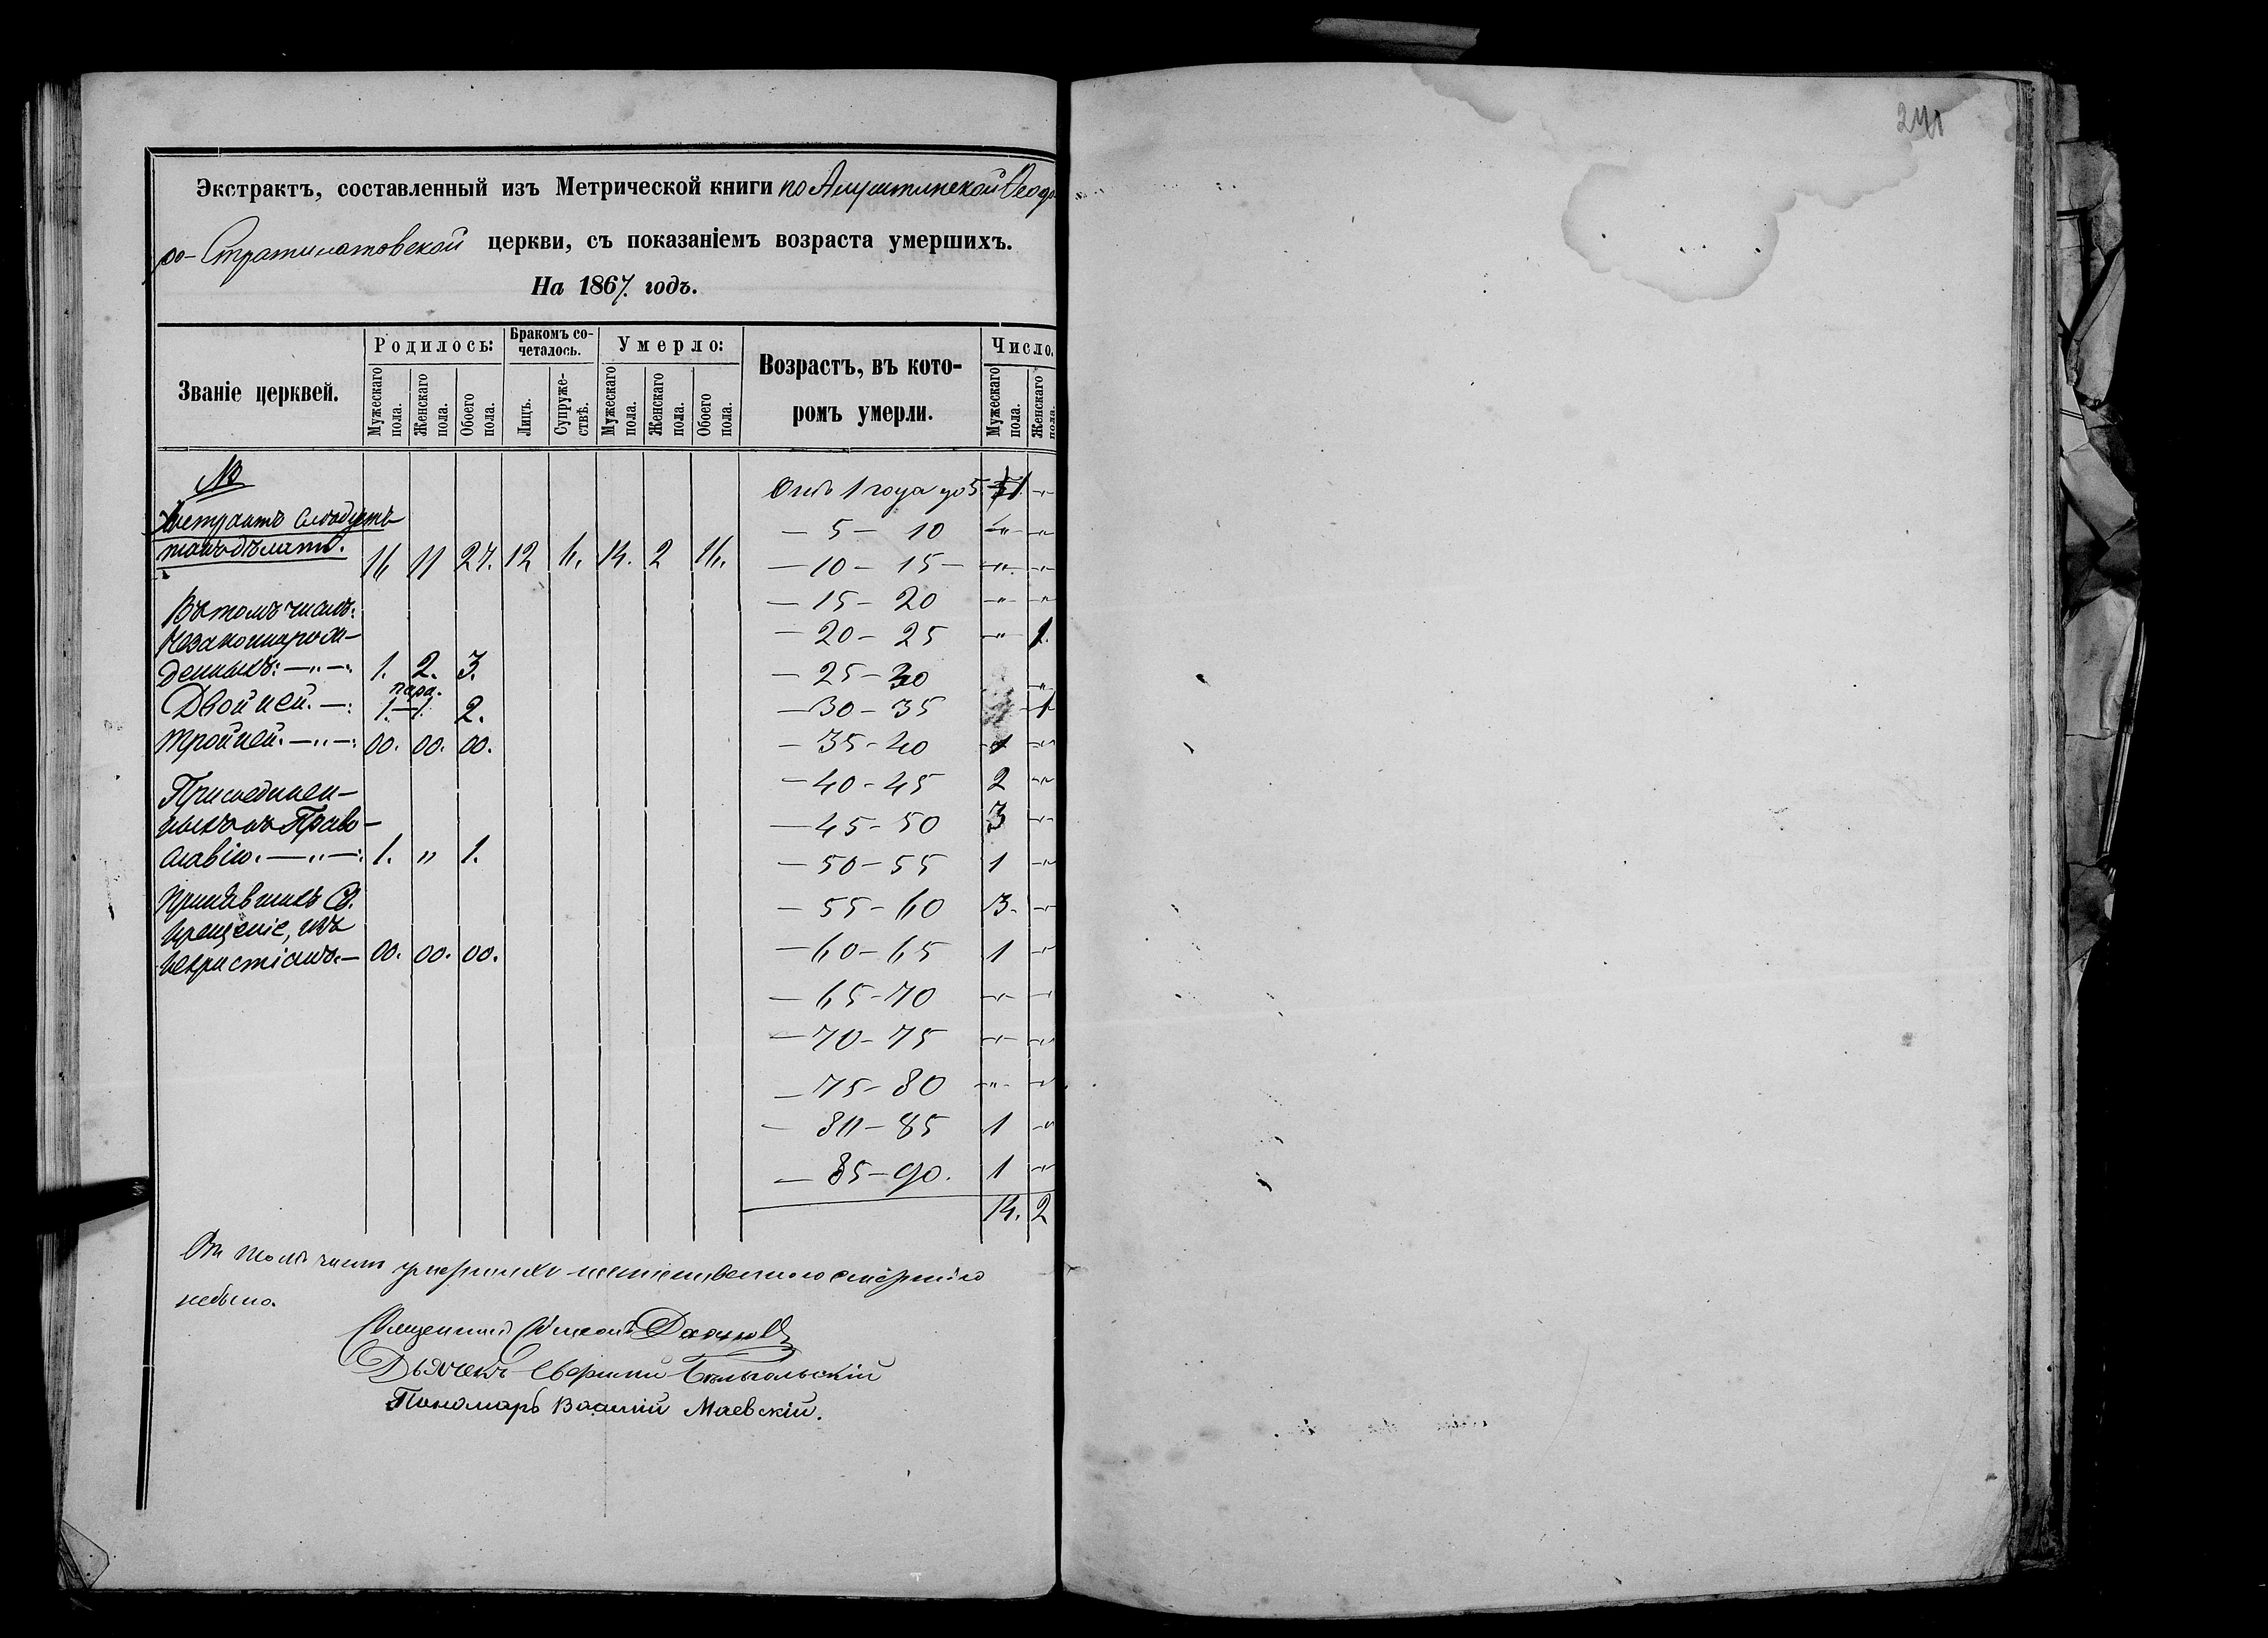 241
Экстрактъ, составленный изъ Метрической книги по Алуштинской Ѳеодо
ро-Стратилатовской церкви, съ показаніемъ возраста умершихъ.
На 1867. годъ.
Званіе церквей. Родилось: Бракомъ сочеталось. Умерло: Возрастъ, въ которомъ умерли. Число.
Мужескаго пола. Женскаго пола. Обоего пола. Лицъ. Супружествъ. Мужескаго пола. Женскаго пола. Обоего пола. Мужескаго пола. Женскаго пола.
NB
Экстрактъ слѣдуетъ
такъ дѣлать. 16 11 27. 12 6. 14. 2 16.
Въ томъ числѣ:
Незаконнорож-
денныхъ: —„—: 1. 2. 3.
пара.
Двойней. —: 1.—1. 2.
Тройней. —„—: 00. 00. 00.
Присоединен-
ныхъ къ Право-
славію. —„—: 1. „ 1.
Принявшихъ Св.
Крещеніе, изъ
нехристіанъ.— 00. 00. 00.
Отъ 1 года до 5 1. -„-
— 5 — 10 -„- -„-
— 10 — 15 — -„- -„-
— 15 — 20 -„- -„-
— 20 — 25 -„- 1.
— 25 — 30 -„-
— 30 — 35 1
— 35 - 40 1 -„-
— 40 - 45 2 -„-
— 45 - 50 3 -„-
— 50 — 55 1 -„-
— 55 - 60 3. -„-
— 60 — 65 1 -„-
— 65 - 70 -„- -„-
— 70 - 75 -„- -„-
— 75 - 80 -„- -„-
— 80 — 85 1 -„-
— 85 — 90. 1 -„-
14. 2
Въ томъ числѣ умершихъ неестественною смертію
небыло.
Священникъ
Дьячекъ
Пономарь Василій Маевскій.